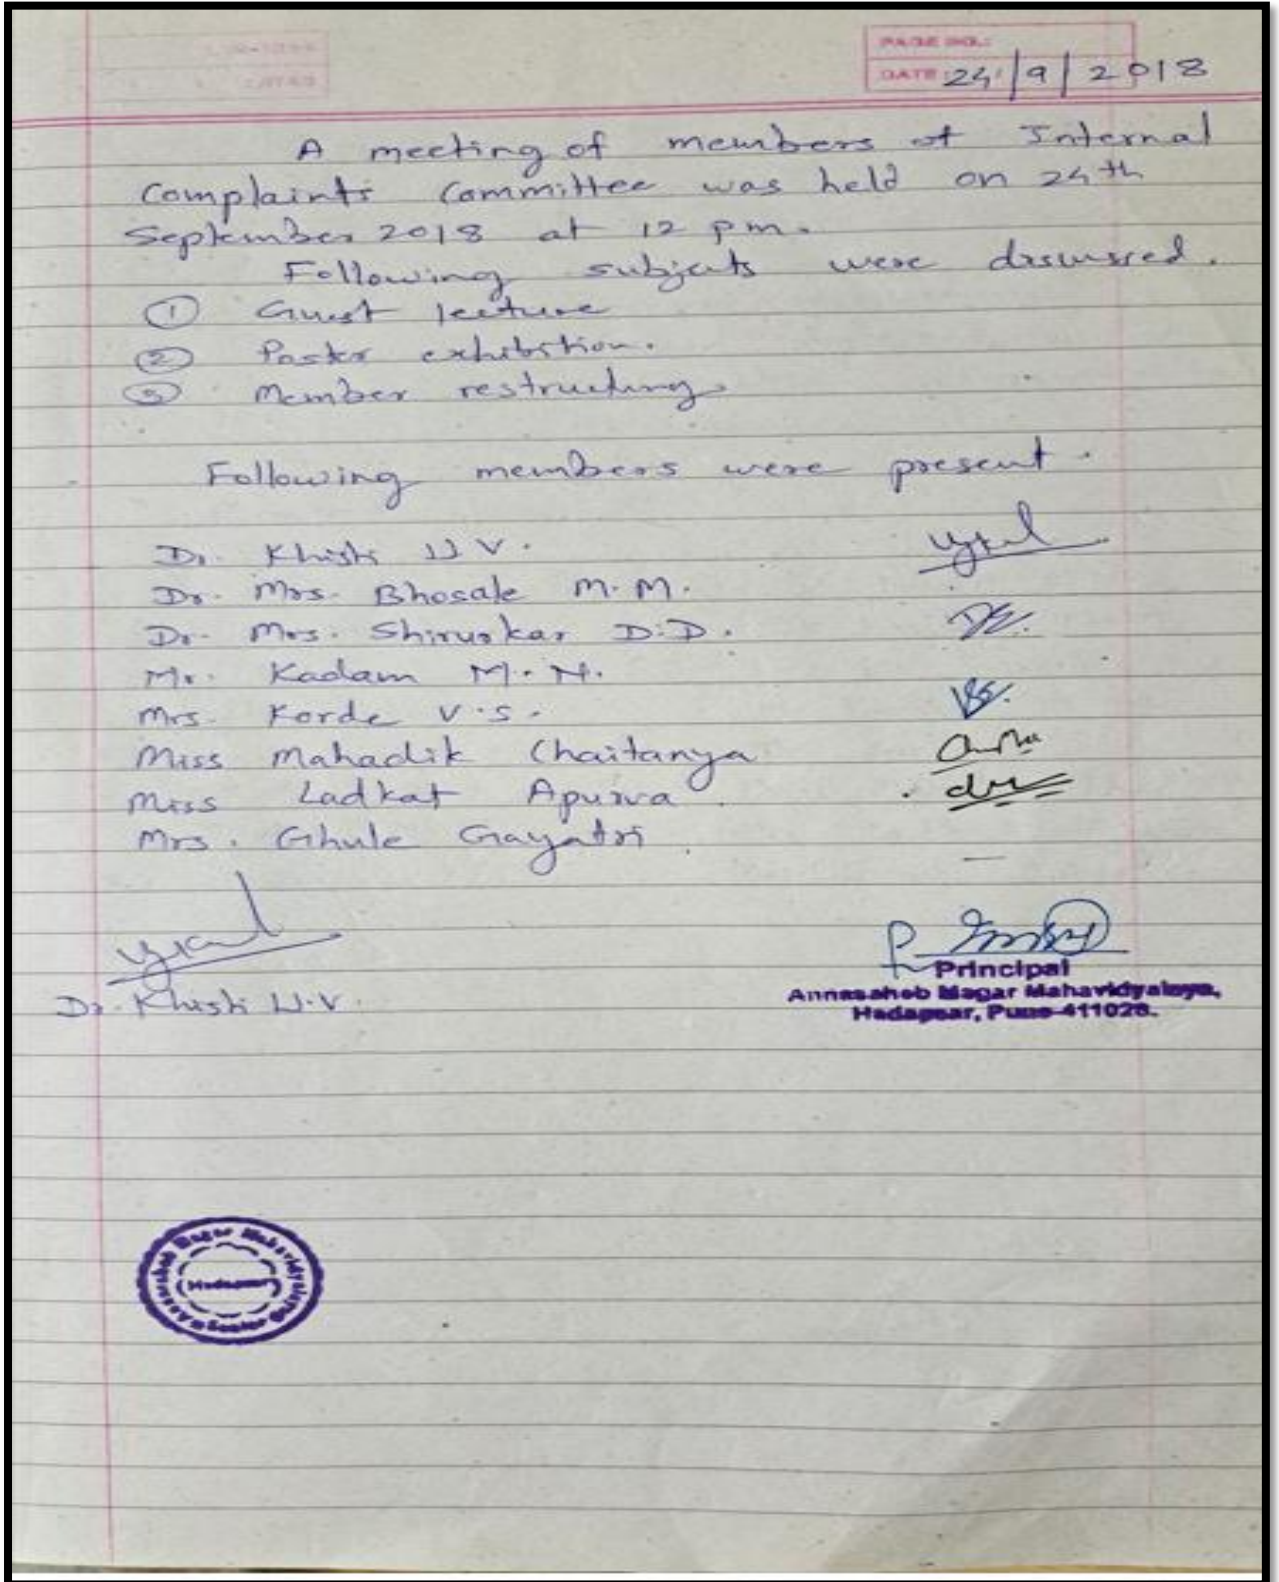 PAGE NO.:
DATE: 24/9/2018
A meeting of members of Internal
Complaints Committee was held on 24th
September 2018 at 12 pm.
Following subjects were discussed.
① Guest lecture
② Poster exhibition.
③ Member restructing.
Following members were present.
Dr. Khisti U V.
Dr. Mrs. Bhosale M. M.
Dr. Mrs. Shirurkar D.D.
Mr. Kadam M. N.
Mrs. Korde V.S.
Miss Mahadik Chaitanya
Miss Ladkat Apurva.
Mrs. Ghule Gayatri.
Dr. Khisti U.V.
Principal
Annasaheb Magar Mahavidyalaya,
Hadapsar, Pune-411028.
Annasaheb Magar Mahavidyalaya
Hadapsar